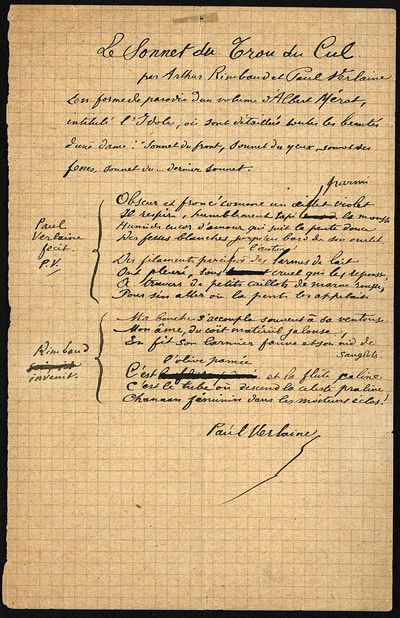 Le Sonnet du Trou du Cul.
par Arthur Rimbaud et Paul Verlaine
En forme de parodie d'un volume d'Albert Mérat,
intitulé l'Idole, où sont détaillées toutes les beautés
d'une dame : "Sonnet du front, sonnet des yeux, sonnet des
fesses, sonnet du... dernier sonnet.
Paul
Verlaine
fecit
P.V.
parmi
Obscur et froncé comme un œillet violet
Il respire, humblement tapi la mousse
Humide encor d'amour qui suit la pente douce
Des fesses blanches jusqu'au bord de son ourlet
Des filaments pareils à des larmes de lait
l'autan
Ont pleuré, sous cruel qui les repousse,
À travers de petits caillots de marne rousse,
Pour s'en aller où la pente les appelait.
Rimbaud
invenit.
Ma bouche s'accoupla souvent à sa ventouse
Mon âme, du coït matériel jalouse,
En fit son larmier fauve et son nid de
sanglots.
l'olive pamée
C'est et la flûte caline
C'est le tube où descend la céleste praline
Chanaan féminin dans les moiteurs éclos !
Paul Verlaine